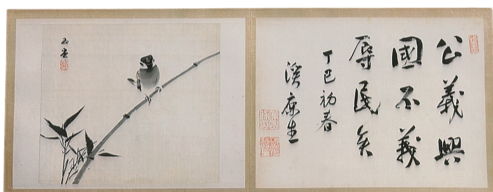 公義興
國不義
辱民矣
丁巳初春
溪康生